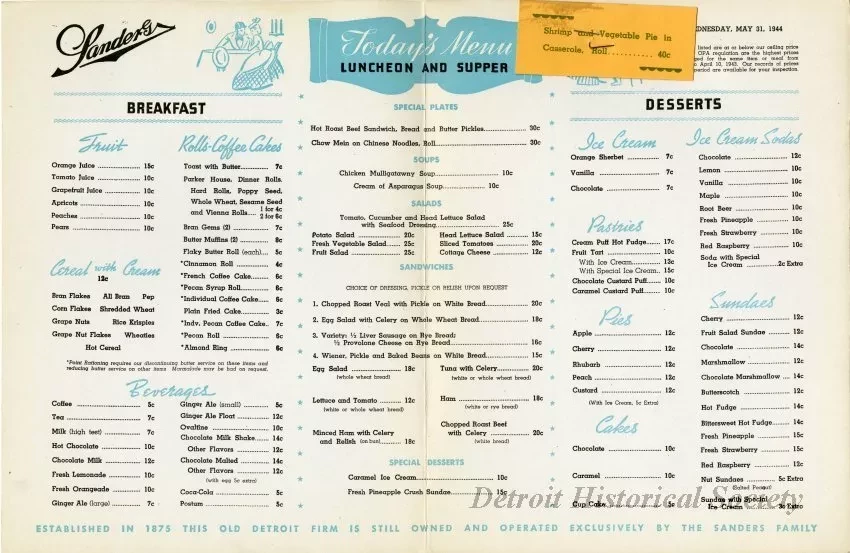 Sanders
Today's Menu
LUNCHEON AND SUPPER
Shrimp and Vegetable Pie in
Casserole, Roll........... 40c
WEDNESDAY, MAY 31, 1944
listed are at or below our ceiling price
OPA regulation are the highest prices
ged for the same item or meal from
April 10, 1943. Our records of prices
period are available for your inspection.
BREAKFAST
Fruit
Orange Juice 15c
Tomato Juice 10c
Grapefruit Juice 10c
Apricots 10c
Peaches 10c
Pears 10c
Cereal with Cream
12c
Bran Flakes All Bran Pep
Corn Flakes Shredded Wheat
Grape Nuts Rice Krispies
Grape Nut Flakes Wheaties
Hot Cereal
Rolls-Coffee Cakes
Toast with Butter 7c
Parker House, Dinner Rolls,
Hard Rolls, Poppy Seed,
Whole Wheat, Sesame Seed
and Vienna Rolls 1 for 4c
2 for 6c
Bran Gems (2) 7c
Butter Muffins (2) 8c
Flaky Butter Roll (each) 5c
*Cinnamon Roll 4c
*French Coffee Cake 6c
*Pecan Syrup Roll 6c
*Individual Coffee Cake 6c
Plain Fried Cake 3c
*Indv. Pecan Coffee Cake 7c
*Pecan Roll 6c
*Almond Ring 6c
*Point Rationing requires our discontinuing butter service on these items and
reducing butter service on other items. Marmalade may be had on request.
Beverages
Coffee 5c
Tea 7c
Milk (high test) 7c
Hot Chocolate 10c
Chocolate Milk 12c
Fresh Lemonade 10c
Fresh Orangeade 10c
Ginger Ale (large) 7c
Ginger Ale (small) 5c
Ginger Ale Float 12c
Ovaltine 10c
Chocolate Milk Shake 14c
Other Flavors 12c
Chocolate Malted 14c
Other Flavors 12c
(with egg 5c extra)
Coca-Cola 5c
Postum 5c
SPECIAL PLATES
Hot Roast Beef Sandwich, Bread and Butter Pickles 30c
Chow Mein on Chinese Noodles, Roll 30c
SOUPS
Chicken Mulligatawny Soup 10c
Cream of Asparagus Soup 10c
SALADS
Tomato, Cucumber and Head Lettuce Salad
with Seafood Dressing 25c
Potato Salad 20c
Fresh Vegetable Salad 25c
Fruit Salad 25c
Head Lettuce Salad 15c
Sliced Tomatoes 20c
Cottage Cheese 12c
SANDWICHES
CHOICE OF DRESSING, PICKLE OR RELISH UPON REQUEST
1. Chopped Roast Veal with Pickle on White Bread 20c
2. Egg Salad with Celery on Whole Wheat Bread 18c
3. Variety: ½ Liver Sausage on Rye Bread;
½ Provolane Cheese on Rye Bread 16c
4. Wiener, Pickle and Baked Beans on White Bread 15c
Egg Salad 18c
(whole wheat bread)
Tuna with Celery 20c
(white or whole wheat bread)
Lettuce and Tomato 12c
(white or whole wheat bread)
Ham 18c
(white or rye bread)
Minced Ham with Celery
and Relish (on bun) 18c
Chopped Roast Beef
with Celery 20c
(white bread)
SPECIAL DESSERTS
Caramel Ice Cream 10c
Fresh Pineapple Crush Sundae 15c
DESSERTS
Ice Cream
Orange Sherbet 7c
Vanilla 7c
Chocolate 7c
Pastries
Cream Puff Hot Fudge 17c
Fruit Tart 10c
With Ice Cream 13c
With Special Ice Cream 15c
Chocolate Custard Puff 10c
Caramel Custard Puff 10c
Pies
Apple 12c
Cherry 12c
Rhubarb 12c
Peach 12c
Custard 12c
(With Ice Cream, 5c Extra)
Cakes
Chocolate 10c
Caramel 10c
Cup Cake 5c
Ice Cream Sodas
Chocolate 12c
Lemon 10c
Vanilla 10c
Maple 10c
Root Beer 10c
Fresh Pineapple 10c
Fresh Strawberry 10c
Red Raspberry 10c
Soda with Special
Ice Cream 2c Extra
Sundaes
Cherry 12c
Fruit Salad Sundae 12c
Chocolate 14c
Marshmallow 12c
Chocolate Marshmallow 14c
Butterscotch 12c
Hot Fudge 14c
Bittersweet Hot Fudge 14c
Fresh Pineapple 15c
Fresh Strawberry 15c
Red Raspberry 12c
Nut Sundaes 5c Extra
(Salted Pecans)
Sundae with Special
Ice Cream 3c Extra
Detroit Historical Society
ESTABLISHED IN 1875 THIS OLD DETROIT FIRM IS STILL OWNED AND OPERATED EXCLUSIVELY BY THE SANDERS FAMILY